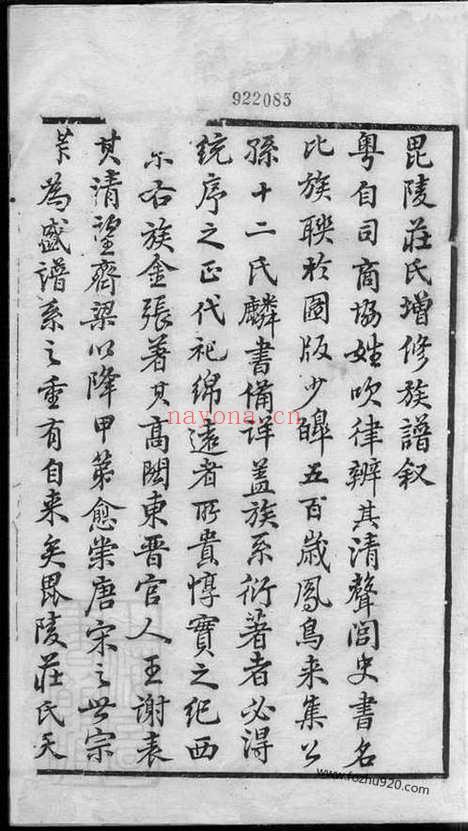 922085
毘陵莊氏增修族譜叙
粤自司商協姓吹律辨其清聲閭史書名
比族聯於圖版少皞五百歲鳳鳥来集公
孫十二氏麟書備詳蓋族系衍著者必得
統序之正代祀綿遠者所貴惇實之紀西
京右族金張著其高閥東晋官人王謝表
其清望齊梁以降甲第愈崇唐宋之世宗
為盛譜系之重有自来矣毘陵莊氏天
nayona.cn
www.fozhu920.com